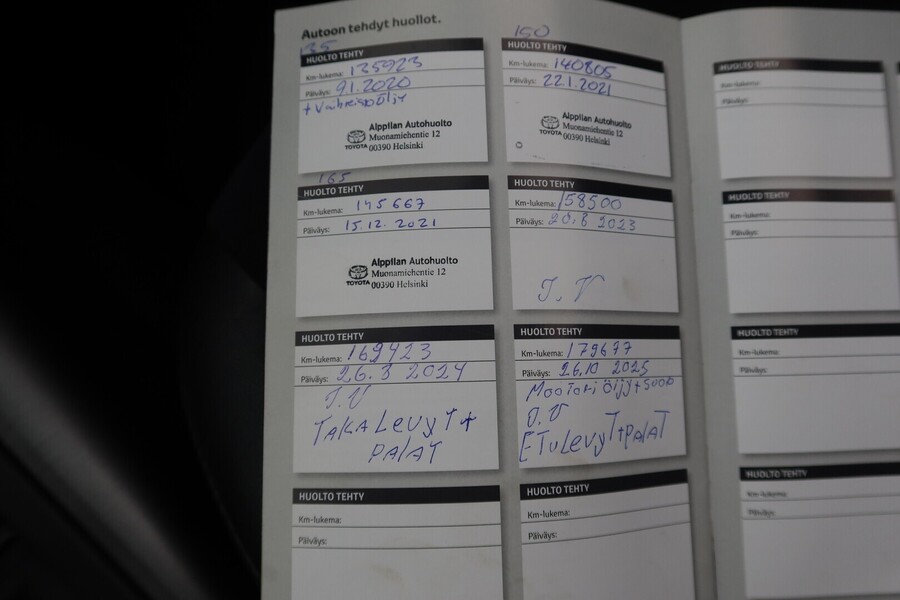 Autoon tehdyt huollot.
135
HUOLTO TEHTY
Km-lukema: 135923
Päiväys: 9.1.2020
+ Vaihteistoöljy
Alppilan Autohuolto
Muonamiehentie 12
TOYOTA 00390 Helsinki
150
HUOLTO TEHTY
Km-lukema: 140805
Päiväys: 22.1.2021
Alppilan Autohuolto
Muonamiehentie 12
TOYOTA 00390 Helsinki
165
HUOLTO TEHTY
Km-lukema: 145667
Päiväys: 15.12.2021
Alppilan Autohuolto
Muonamiehentie 12
TOYOTA 00390 Helsinki
HUOLTO TEHTY
Km-lukema: 158500
Päiväys: 20.8 2023
J.V
HUOLTO TEHTY
Km-lukema: 169423
Päiväys: 26.3 2024
J.V
TAKALEVYT+
PALAT
HUOLTO TEHTY
Km-lukema: 179677
Päiväys: 26.10 2025
Moottori öljy +
J.V
ETULEVYT+PALAT
HUOLTO TEHTY
Km-lukema:
Päiväys:
HUOLTO TEHTY
Km-lukema:
Päiväys:
HUOLTO TEHTY
Km-lukema:
Päiväys:
HUOLTO TEHTY
Km-lukema:
Päiväys:
HUOLTO TEHTY
Km-lukema:
Päiväys:
HUOLTO TEHTY
Km-lukema:
Päiväys: